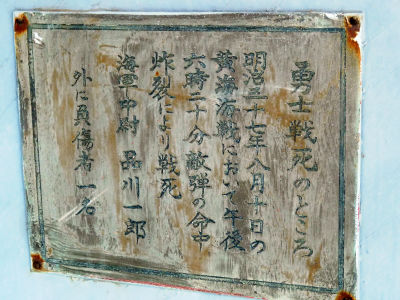 勇士戦死のところ
明治三十七年八月十日の
黄海海戦において午後
六時二十分敵弾の命中
炸裂により戦死
海軍中尉 品川一郎
外に負傷者一名